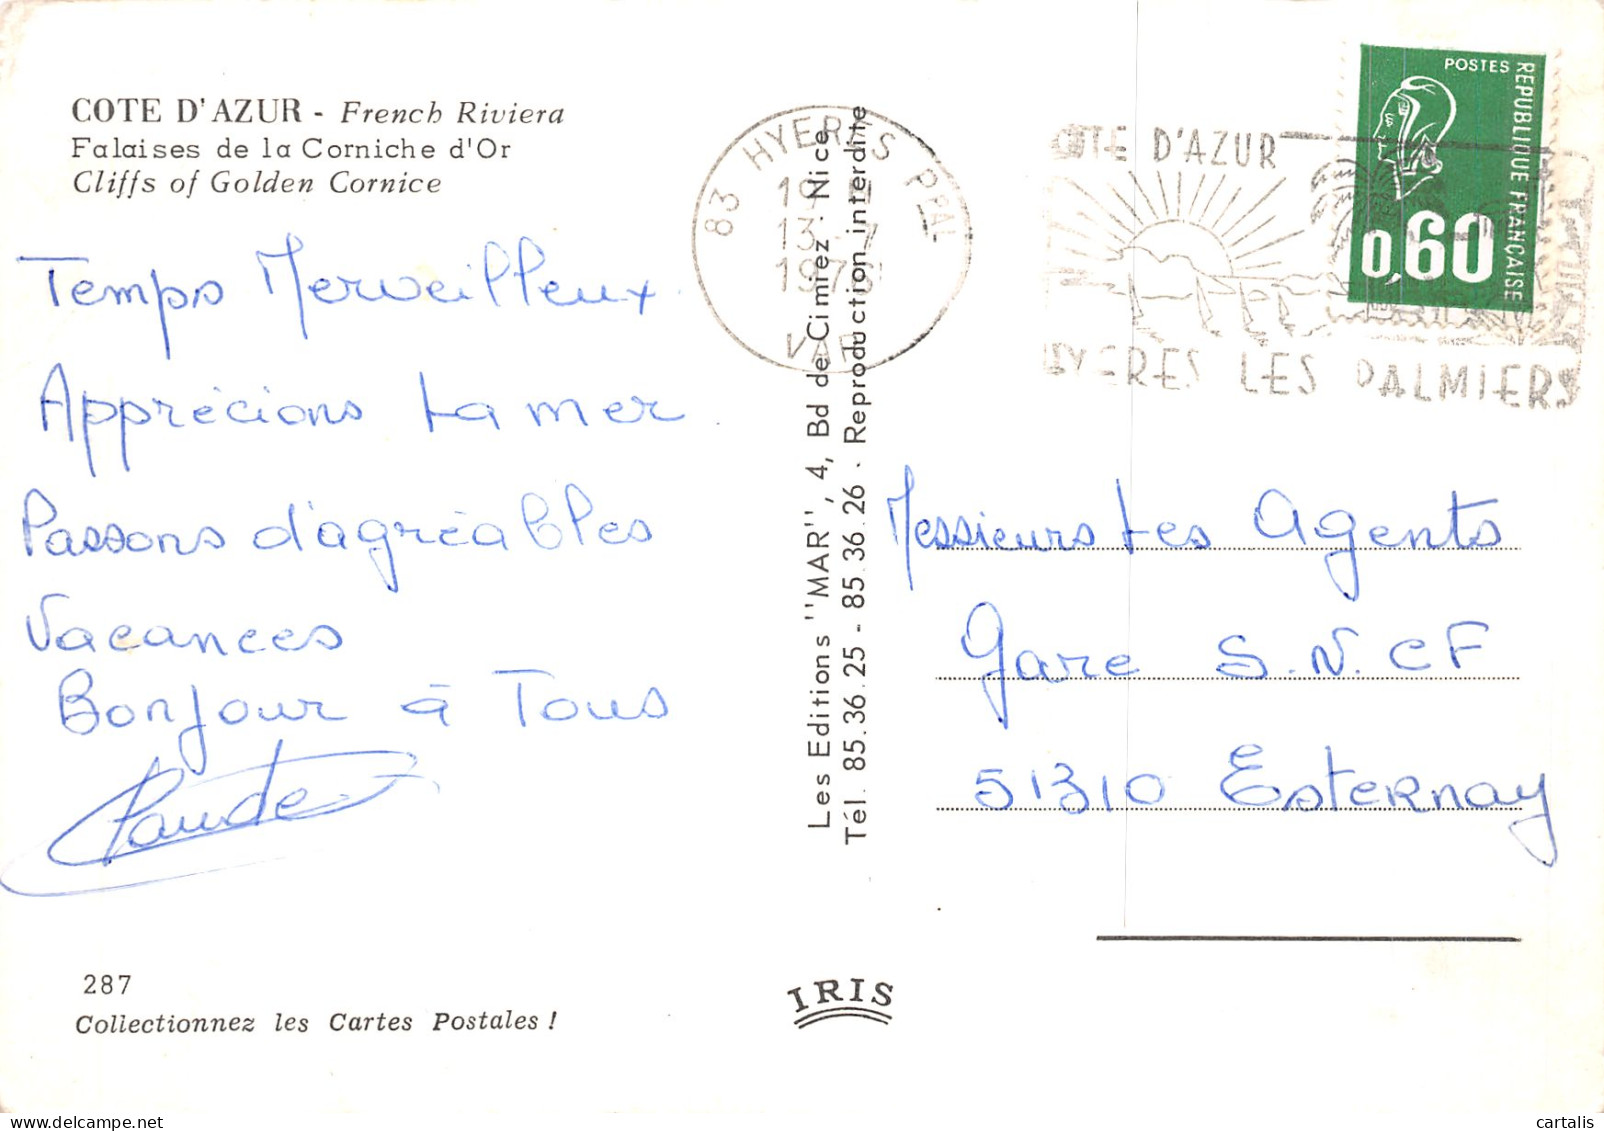 COTE D'AZUR - French Riviera
Falaises de la Corniche d'Or
Cliffs of Golden Cornice
Temps Merveilleux
Apprécions La mer
Passons d'agréables
Vacances
Bonjour à Tous
Claude
287
Collectionnez les Cartes Postales !
Les Editions "MAR", 4, Bd de Cimiez - Nice
Tél. 85.36.25 - 85.36.26 - Reproduction interdite
IRIS
83 HYERES PPAL
19 H
13 - 7
1976
VAR
COTE D'AZUR
HYERES LES PALMIERS
POSTES
REPUBLIQUE FRANÇAISE
0,60
Messieurs Les Agents
Gare S.N.CF
51310 Esternay
cartalis